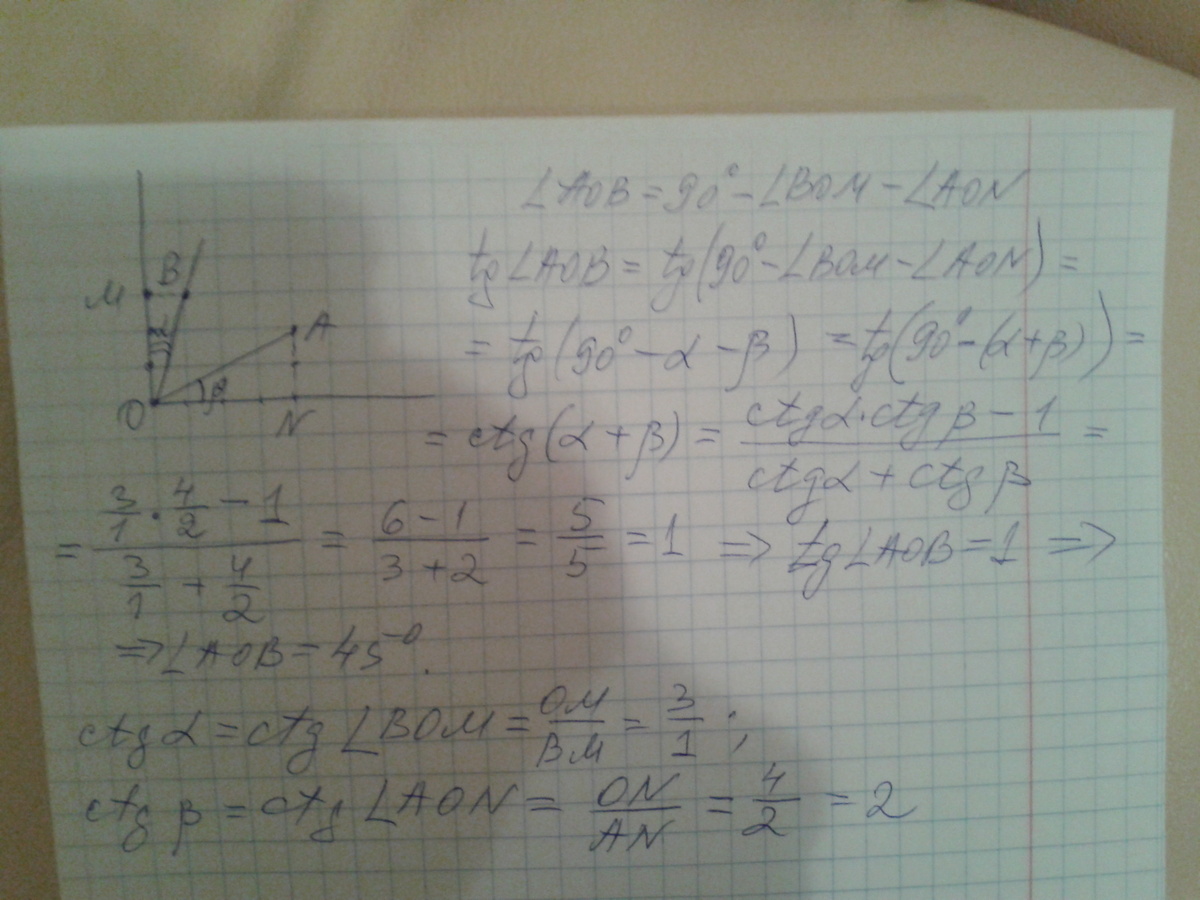 M B α A
O β N
∠AOB = 90° - ∠BOM - ∠AON
tg∠AOB = tg(90° - ∠BOM - ∠AON) =
= tg(90° - α - β) = tg(90° - (α + β)) =
= ctg(α + β) = (ctgα · ctgβ - 1)/(ctgα + ctgβ) =
= (3/1 · 4/2 - 1)/(3/1 + 4/2) = (6 - 1)/(3 + 2) = 5/5 = 1 => tg∠AOB = 1 =>
=> ∠AOB = 45°.
ctgα = ctg∠BOM = OM/BM = 3/1 ;
ctgβ = ctg∠AON = ON/AN = 4/2 = 2